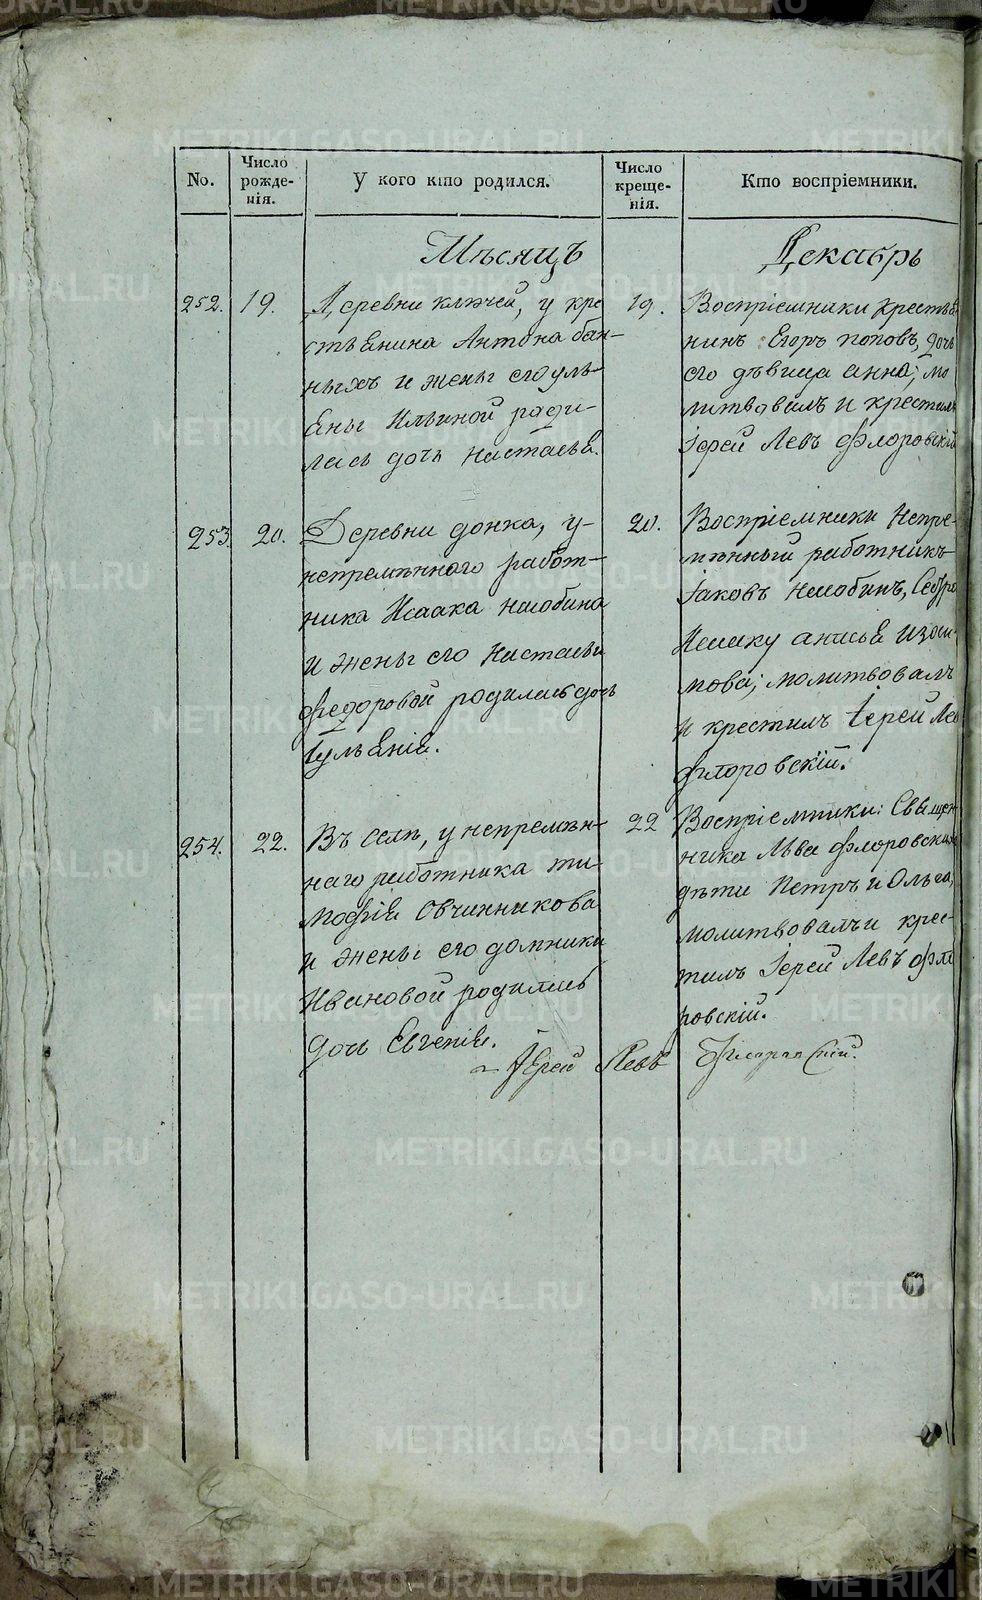 No.
Число рожде-нія.
У кого кто родился.
Число креще-нія.
Кто воспріемники.
Мѣсяцъ Декабрь
252. 19.
Деревни ключей, у кре
стьянина Антона бан-
ныхъ и жены его уль-
яны Ильиной роди-
лась дочь настасья.
19.
Воспріемники крестья
нинъ Егоръ поповъ, дочь
его дѣвица анна; мо
литвовалъ и крестилъ
Іерей Левъ Флоровскій
253. 20.
Деревни донка, у
непремѣннаго работ-
ника Исаака
и жены его настасьи
федоровой родилась дочь
Іульянія.
20.
Воспріемники Непре-
мѣнный работникъ
Іаковъ
Исааку анисья
мова; молитвовалъ
и крестилъ Іерей Лев
флоровскій.
254. 22.
Въ селѣ, у непремѣн-
наго работника ти-
мофія Овчинникова
и жены его домники
Ивановой родилась
дочь Евгенія.
22
Воспріемники: Священ-
ника Льва Флоровскаго
дѣти Петръ и Ольга;
молитвовалъ и крес-
тилъ Іерей Левъ фло
ровскій.
Іерей Левъ Флоровскій.
METRIKI.GASO-URAL.RU